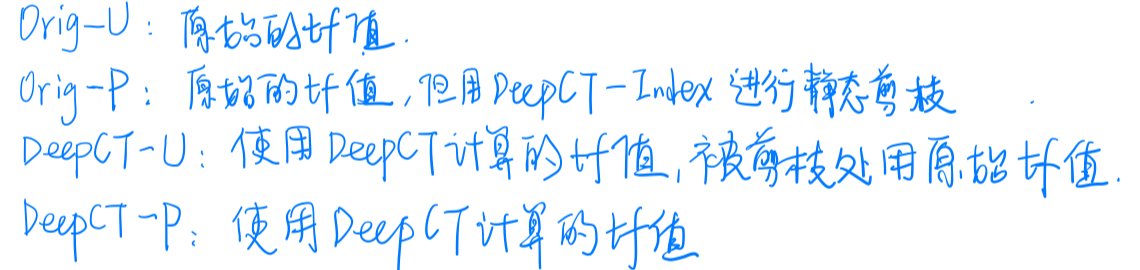 Orig-U: 原始的tf值.
Orig-P: 原始的tf值,但用DeepCT-Index进行静态剪枝.
DeepCT-U: 使用DeepCT计算的tf值,被剪枝处用原始tf值.
DeepCT-P: 使用DeepCT计算的tf值